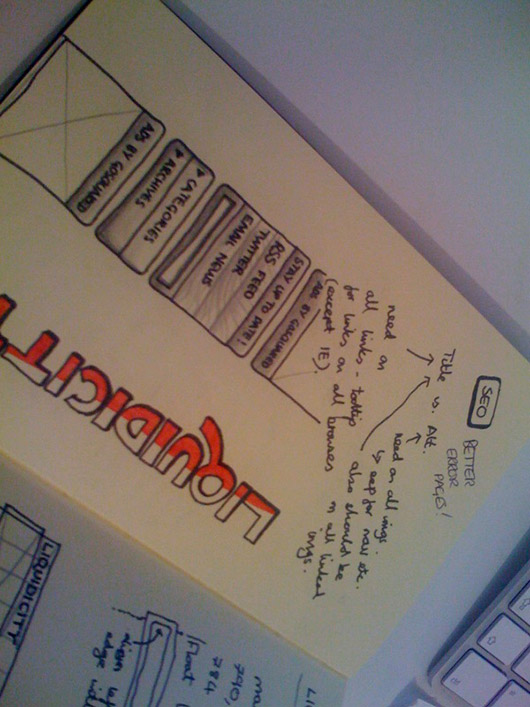 SEO
BETTER
ERROR
PAGES!
Title vs. Alt.
need on
all links - tooltip
for links on all browsers
(except IE).
need on all imgs.
↳ esp for nav etc.
also should be
on all linked
imgs.
ADS BY GOSQUARED
STAY UP TO DATE!
RSS FEED
TWITTER
EMAIL NEWS
▶ CATEGORIES
▶ ARCHIVES
ADS BY GOSQUARED
LIQUIDICITY
LIQUIDICITY
(float
784
align
edge